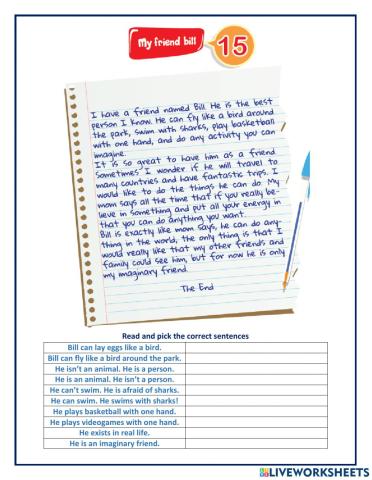 My friend bill
15
I have a friend named Bill. He is the best
person I know. He can fly like a bird around
the park, swim with sharks, play basketball
with one hand, and do any activity you can
imagine.
It is so great to have him as a friend
Sometimes I wonder if he will travel to
many countries and have fantastic trips. I
would like to do the things he can do. My
mom says all the time that if you really be-
lieve in something and put all your energy in
that you can do anything you want.
Bill is exactly like mom says, he can do any-
thing in the world, the only thing is that I
would really like that my other friends and
family could see him, but for now he is only
my imaginary friend.
The End
Read and pick the correct sentences
Bill can lay eggs like a bird.
Bill can fly like a bird around the park.
He isn't an animal. He is a person.
He is an animal. He isn't a person.
He can't swim. He is afraid of sharks.
He can swim. He swims with sharks!
He plays basketball with one hand.
He plays videogames with one hand.
He exists in real life.
He is an imaginary friend.
LIVEWORKSHEETS